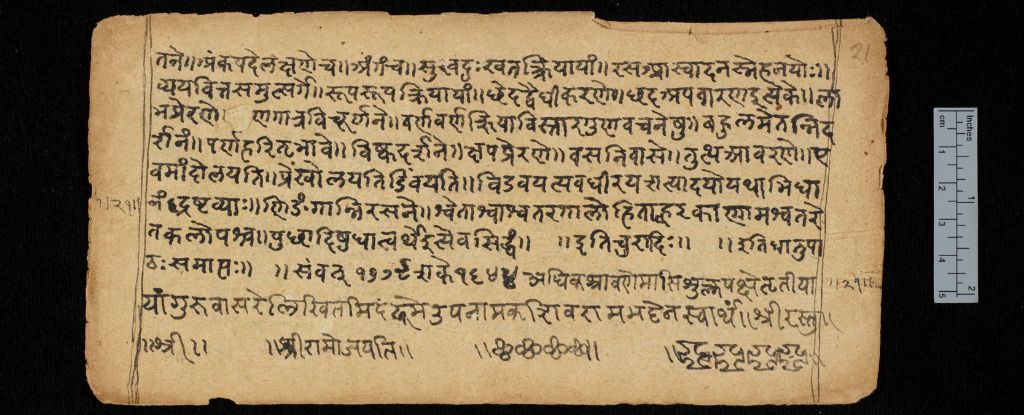 तनै॥ अंकपदेलक्षणेच॥ अंगच॥ सुखदुःखतत्क्रियायां॥ रसआस्वादनस्नेहनयोः॥
व्ययवित्तसमुत्सर्गे॥ रूपरूपक्रियायां॥ छेदद्वैधीकरणे॥ छदअपवारणइत्येके॥ ला
भप्रेरणे व्रणगात्रविचूर्णने॥ वर्णवर्णक्रियाविस्तारगुणवचनेषु॥ बहुलमेतन्निद
र्शनं॥ पर्णहरितभावे॥ विष्कदर्शने॥ क्षपप्रेरणे॥ वसनिवासे॥ तुत्थआवरणे॥ ए
वमांदोलयति॥ प्रेंखोलयति विडंवयति॥ अवधीरयत्यादयोयथाभिधा
नंद्रष्टव्याः॥ णिङंगान्निरसने॥ श्वेताश्वाश्वतरगालोहिताह्वरकाणामश्वतरे
तकलोपश्च॥ पुछादिषुधात्वर्थेइत्येवसिद्धं॥ ॥ इतिचुरादिः॥ ॥ इतिधातुपा
ठःसमाप्तः॥ ॥ संवत् १७७९ शके १६४४ अधिकश्रावणेमासिशुक्लपक्षेतृतीया
यांगुरुवासरेलिखितमिदं उपनामकाशिवरामभट्टेनस्वार्थं॥ श्रीरस्तु॥
॥ श्री॥ ॥ श्रीरामोजयति॥
॥२१॥
॥२१॥
21
Inches
cm
1
2
1
2
3
4
5